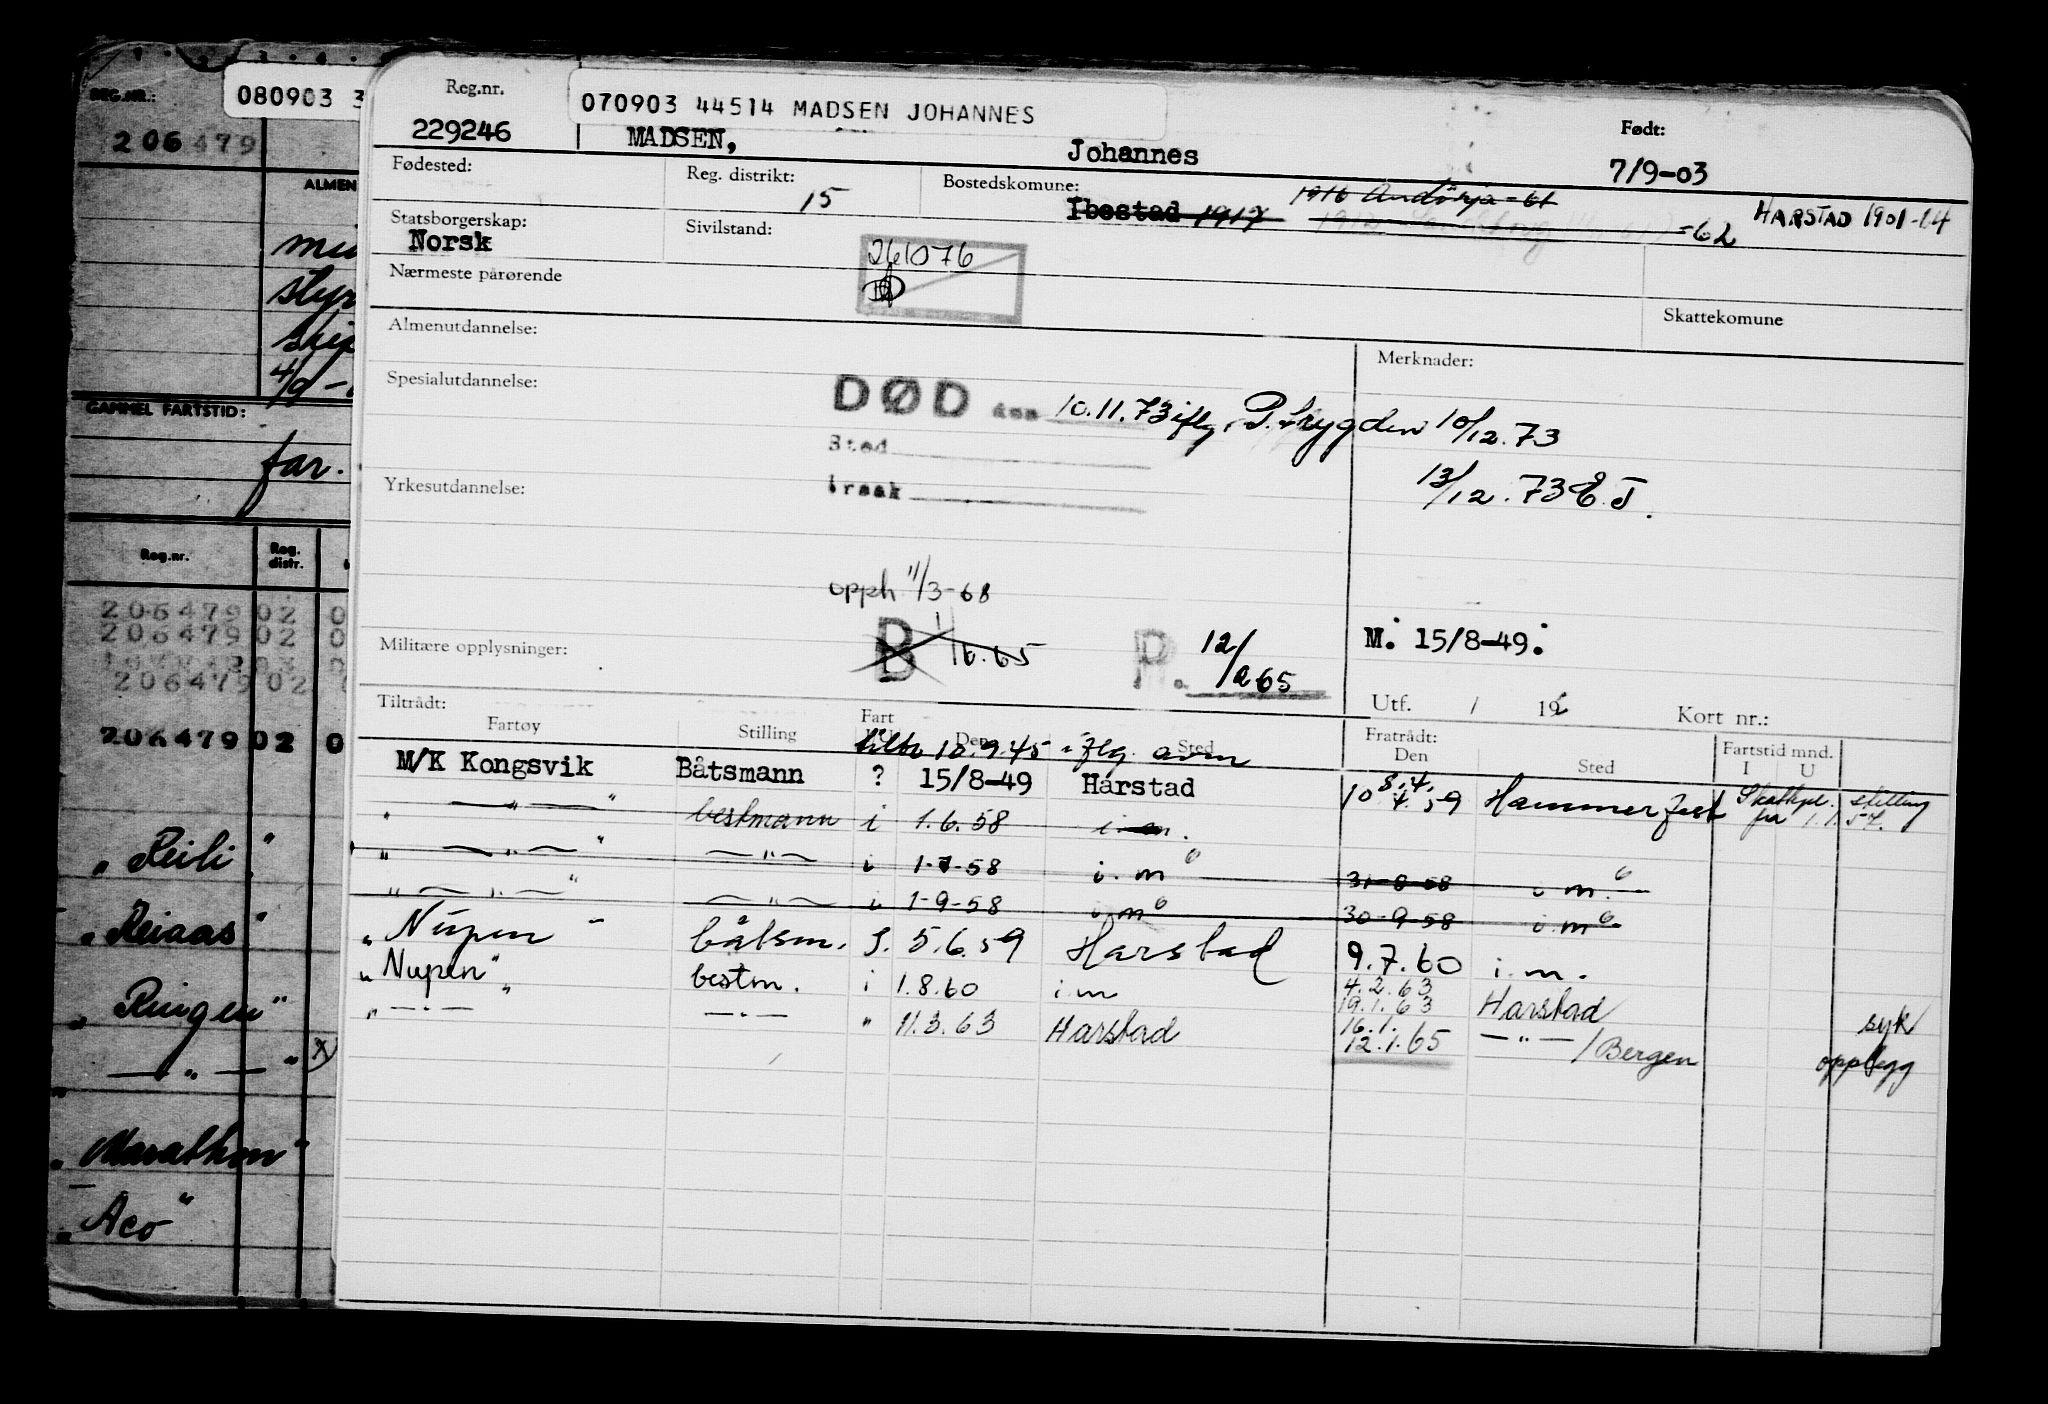 REG.NR.:
080903 3
206479
ALMEN
styr
4/9 -
GAMMEL FARTSTID:
far.
Reg.nr.
Reg. distr.
206479 02 0
206479 02 0
206479 02
206479 02 0
„ Reili "
„ Reiaas "
„ Ringen "
— " — " x
„ Marathon "
„ Aco "
Reg.nr.
070903 44514 MADSEN JOHANNES
229246
MADSEN,
Johannes
Født:
7/9-03
Fødested:
Reg. distrikt:
15
Bostedskomune:
Ibestad 1917
1916 Andörja - 61
=62
HARSTAD 1901-14
Statsborgerskap:
Norsk
Sivilstand:
261076
Nærmeste pårørende
Skattekomune
Almenutdannelse:
Merknader:
Spesialutdannelse:
DØD den 10.11.73 iflg. P.trygden 10/12.73
Sted
13/12.73 E.J.
Årsak
Yrkesutdannelse:
opph 11/3-68
B
R. 12/2 65
Militære opplysninger:
M: 15/8-49:
Utf. / 19
Kort nr.:
Tiltrådt:
Fartøy
Stilling
Fart
Den
Sted
Fratrådt:
Den
Sted
Fartstid mnd.
I U
tiltr 18.9.45 iflg. avm
M/K Kongsvik Båtsmann ? 15/8-49 Harstad 8.4. 10/4.59 Hammerfest Skattepl. stilling fra 1.1.57.
" — " — " bestmann i 1.6.58 i m.
" — " — " — " — i 1-7-58 i. m 31-8-58 i m.
" — " — " — " — i 1-9-58 i m 30-9-58 i m
„ Nupen " båtsm. I. 5.6.59 Harstad 9.7.60 i. m.
„ Nupen " bestm. i 1.8.60 i m 4.2.63 19.1.63 Harstad syk
" — " — " — " — " 11.3.63 Harstad 16.1. 12.1.65 — " — / Bergen opplegg